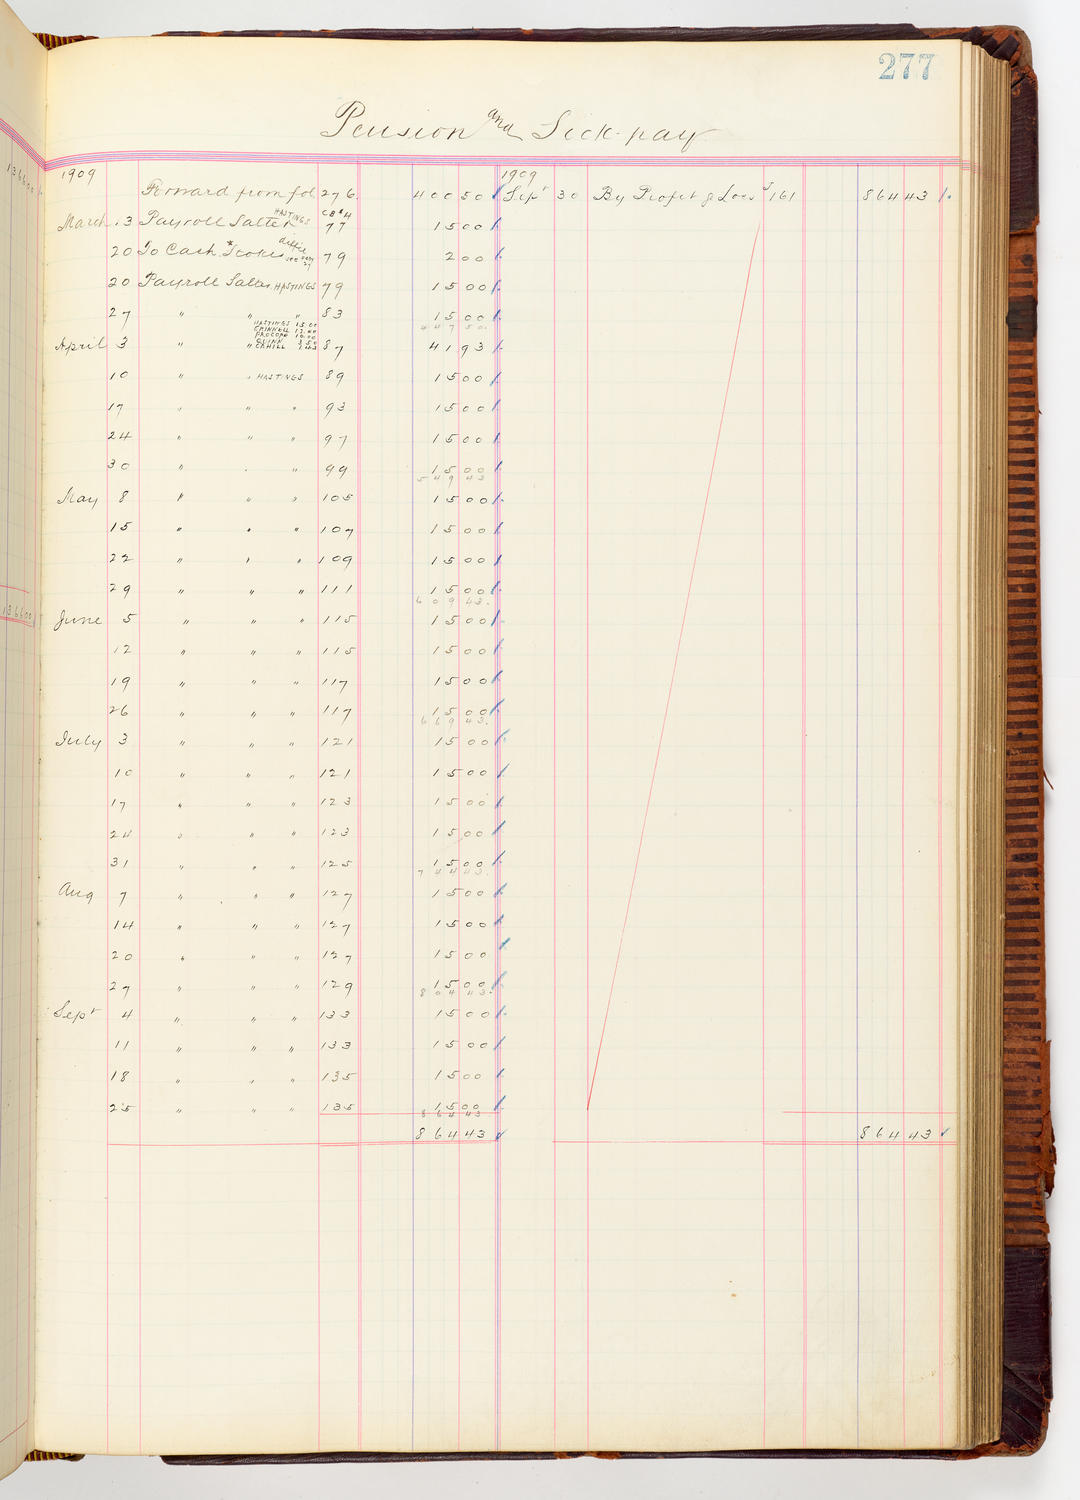 277
Pension and Sick-pay
1909 1909
Forward from fol. 276. 400 50 Sept 30 By Profit & Loss 161 864 43
HASTINGS CB#4
March 13 Payroll Salter 77 15 00
20 To Cash 79 2 00
20 Payroll Salter HASTINGS 79 15 00
27 " " " 83 15 00
447 50
HASTINGS 15.00
CRINNELL 13.00
10.00
QUINN 2.50
April 3 " " CAHILL 1.43 87 41 93
10 " " HASTINGS 89 15 00
17 " " " 93 15 00
24 " " " 97 15 00
30 " " " 99 15 00
549 43
May 8 " " " 105 15 00
15 " " " 107 15 00
22 " " " 109 15 00
29 " " " 111 15 00
609 43.
June 5 " " " 115 15 00
12 " " " 115 15 00
19 " " " 117 15 00
26 " " " 117 15 00
669 43.
July 3 " " " 121 15 00
10 " " " 121 15 00
17 " " " 123 15 00
24 " " " 123 15 00
31 " " " 125 15 00
744 43.
Aug 7 " " " 127 15 00
14 " " " 127 15 00
20 " " " 127 15 00
27 " " " 129 15 00
804 43.
Sept 4 " " " 133 15 00
11 " " " 133 15 00
18 " " " 135 15 00
25 " " " 135 15 00
864 43
864 43 864 43
136600
136600